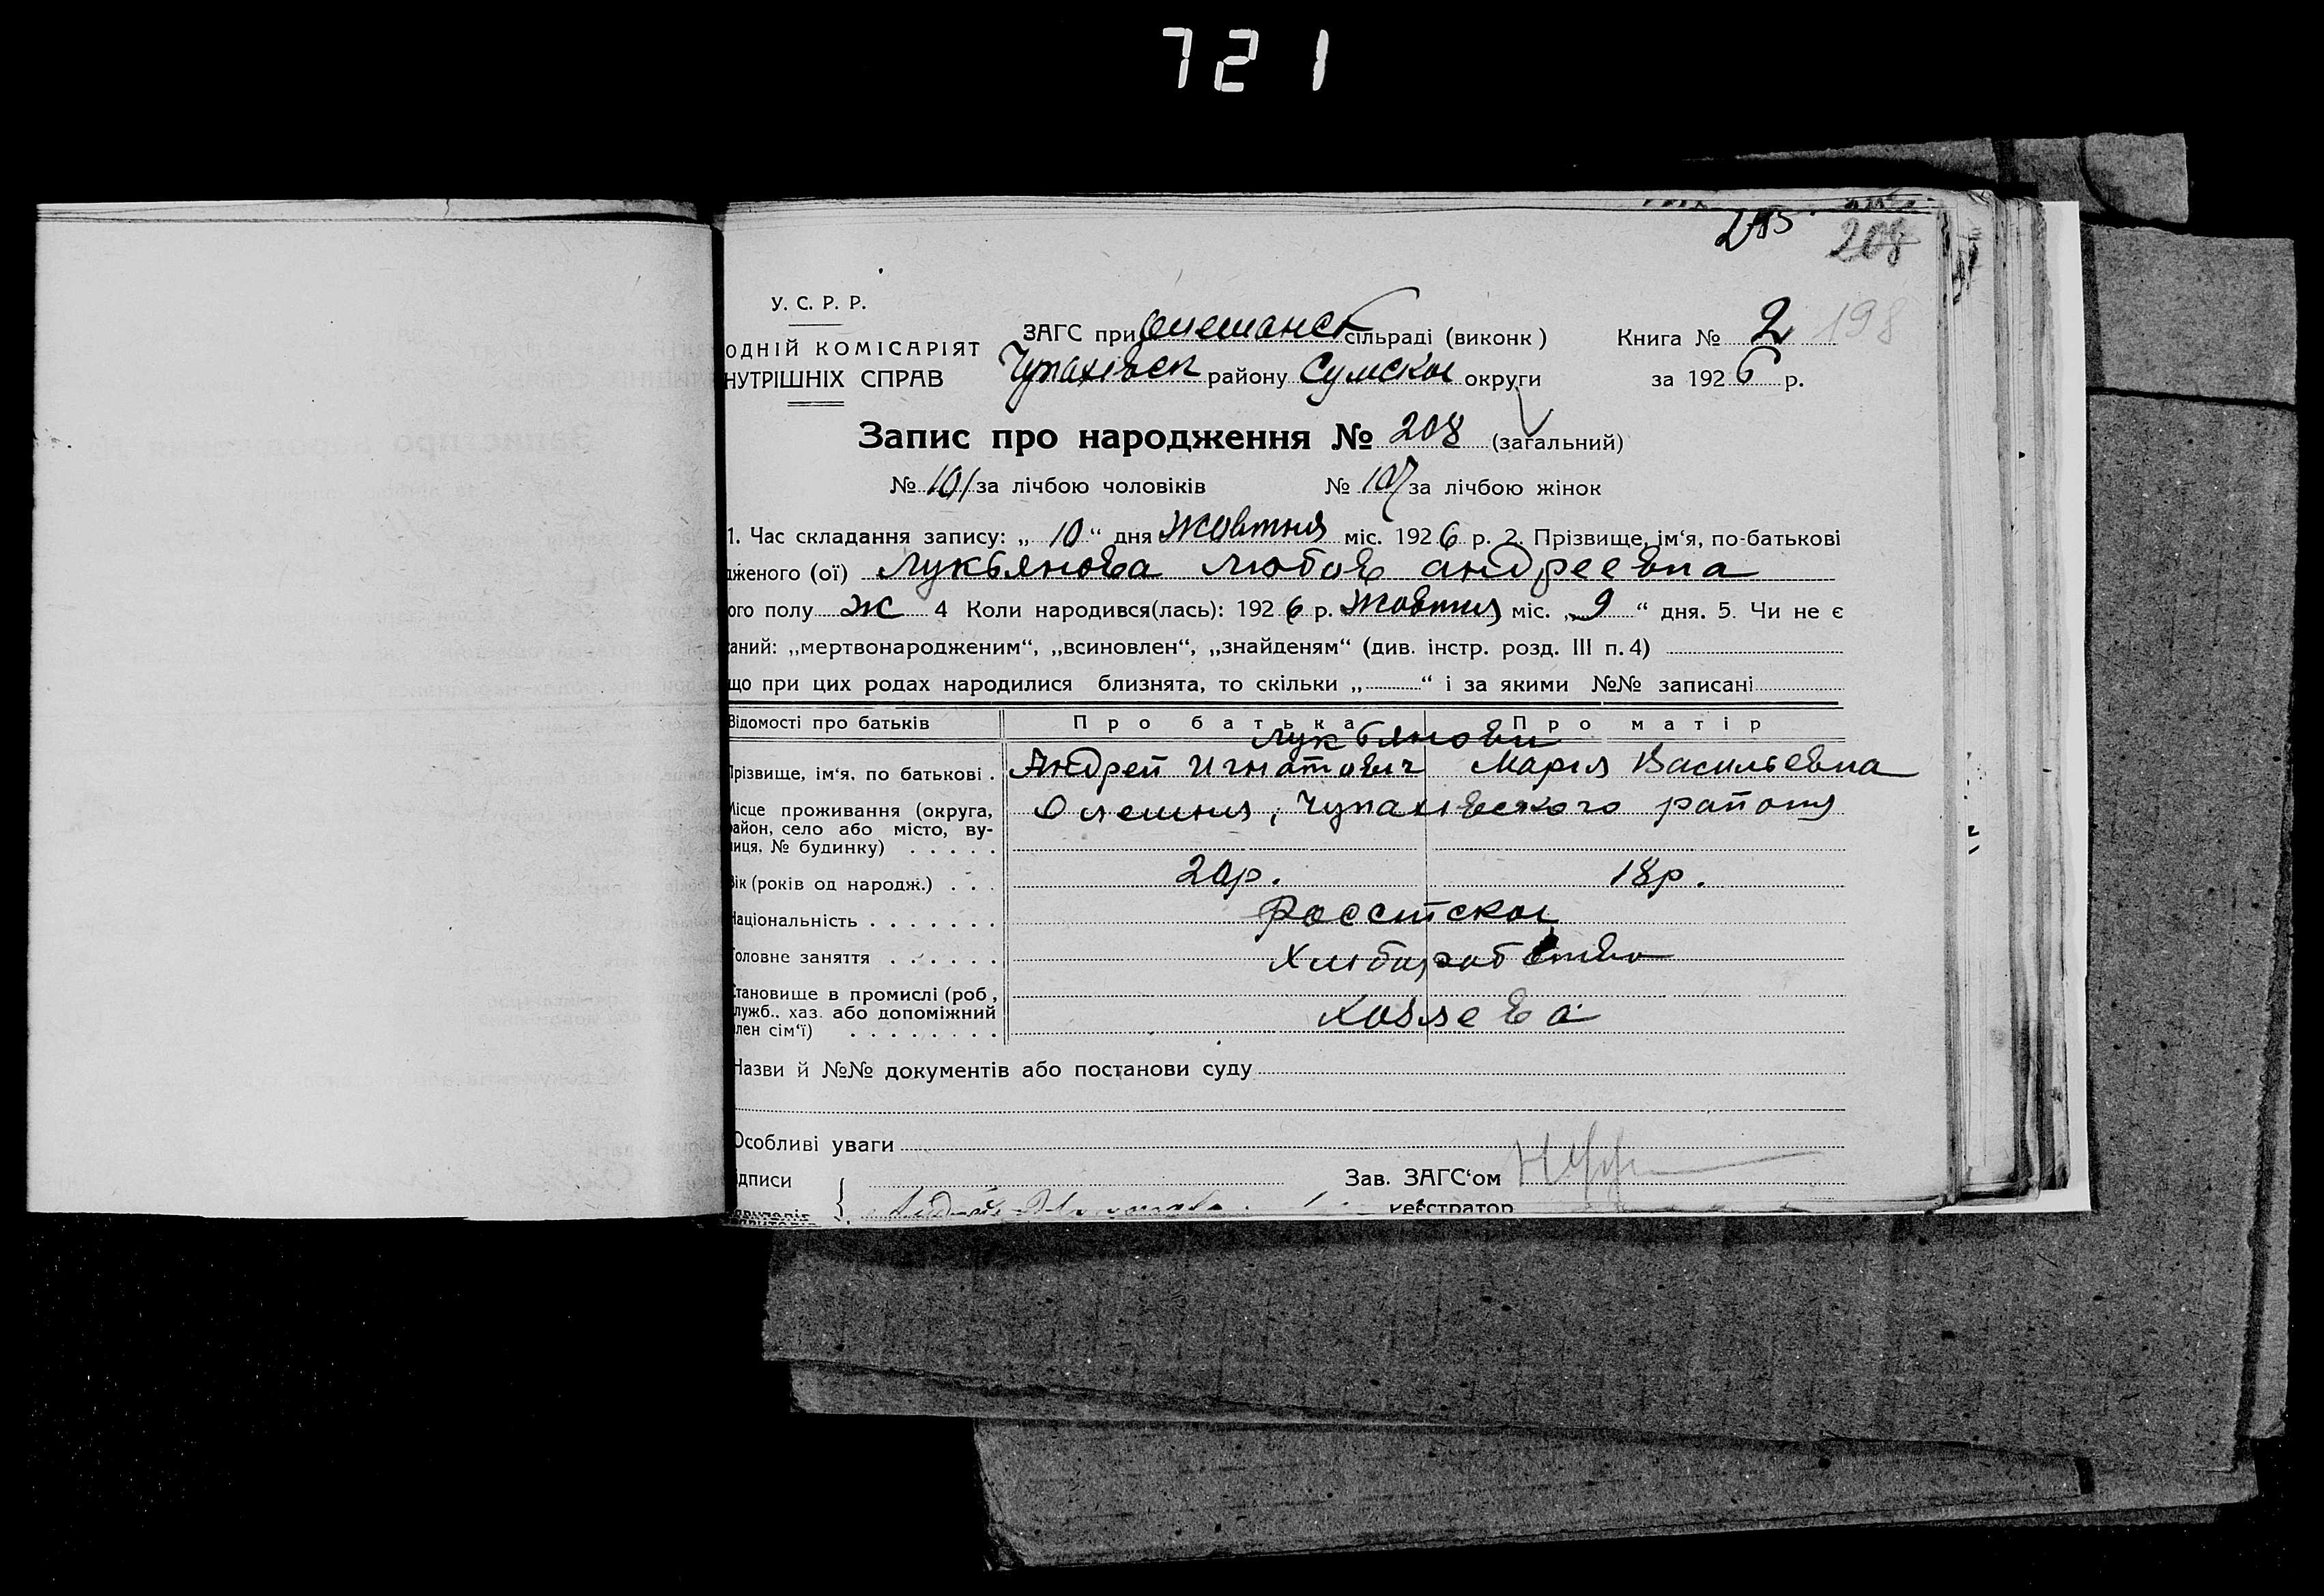 721
295
208
У. С. Р. Р.
ЗАГС при Олешанск сільраді (виконк)
Книга № 2 198
ОДНІЙ КОМІСАРІЯТ
Чупахівск району Сумскої округи
НУТРІШНІХ СПРАВ
за 1926 р.
Запис про народження № 208 (загальний)
№ 101 за лічбою чоловіків № 107 за лічбою жінок
1. Час складання запису: „ 10 “ дня Жовтня міс. 1926 р. 2. Прізвище, ім‘я, по-батькові
дженого (ої) Лукьянова Любов Андреевна
ого полу ж 4 Коли народився(лась): 1926 р. Жовтня міс. „ 9 “ дня. 5. Чи не є
заний: „мертвонародженим“, „всиновлен“, „знайденям“ (див. інстр. розд. III п. 4)
що при цих родах народилися близнята, то скільки „ “ і за якими №№ записані
Відомості про батьків Про батька Про матір
Лукьянови
Прізвище, ім‘я, по батькові . Андрей Игнатович Мария Васильевна
Місце проживання (округа, Олешня, Чупахівского района
район, село або місто, ву-
лиця, № будинку) . . . . .
Вік (років од народж.) . . . 20р. 18р.
Національність . . . . . . .
Головне заняття . . . . . . Хлиборобство
Становище в промислі (роб,
служб., хаз. або допоміжний Хозяева
член сім‘ї) . . . . . . . .
Назви й №№ документів або постанови суду
Особливі уваги
ідписи
Зав. ЗАГС‘ом
реєстратор